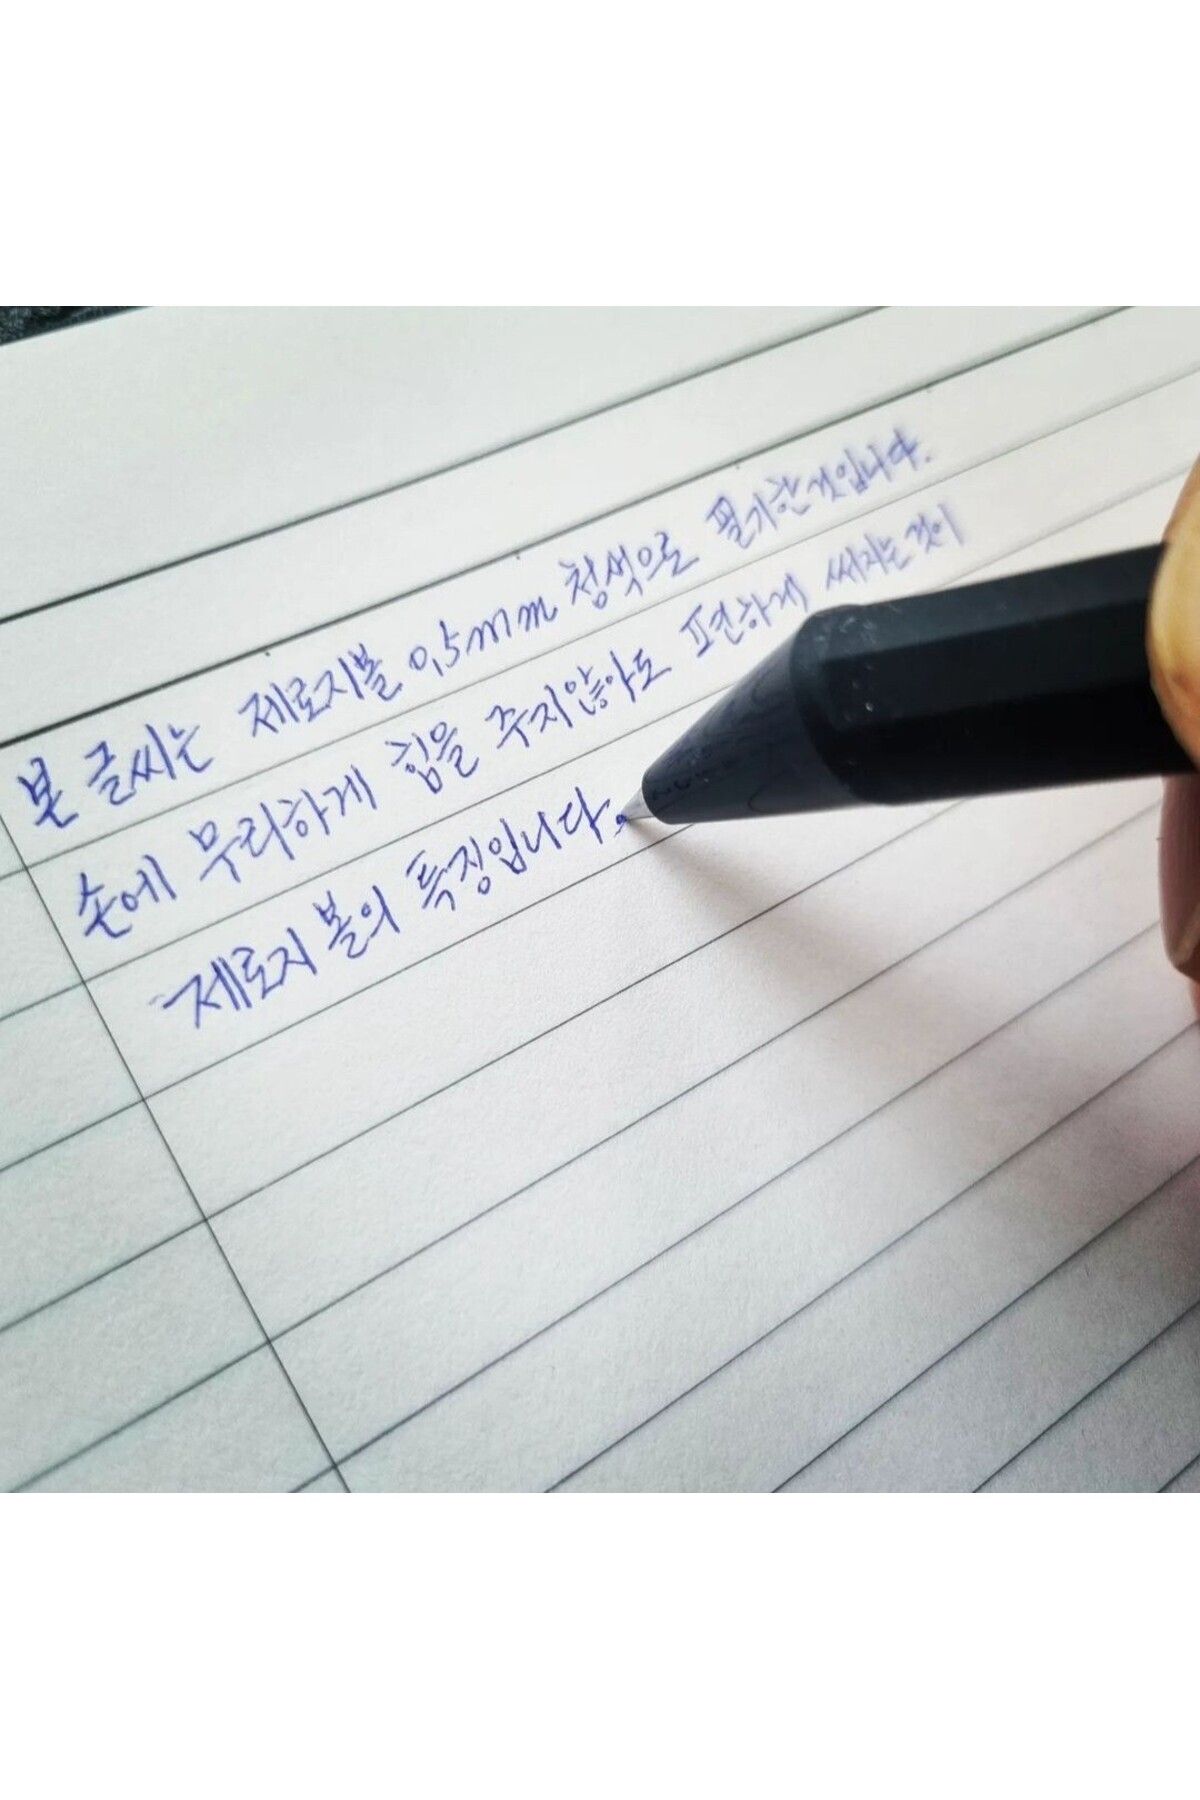 본 글씨는 제로지볼 0,5mm 청색으로 필기한것입니다.
손에 무리하게 힘을 주지않아도 편하게 써지는것이
제로지 볼의 특징입니다.